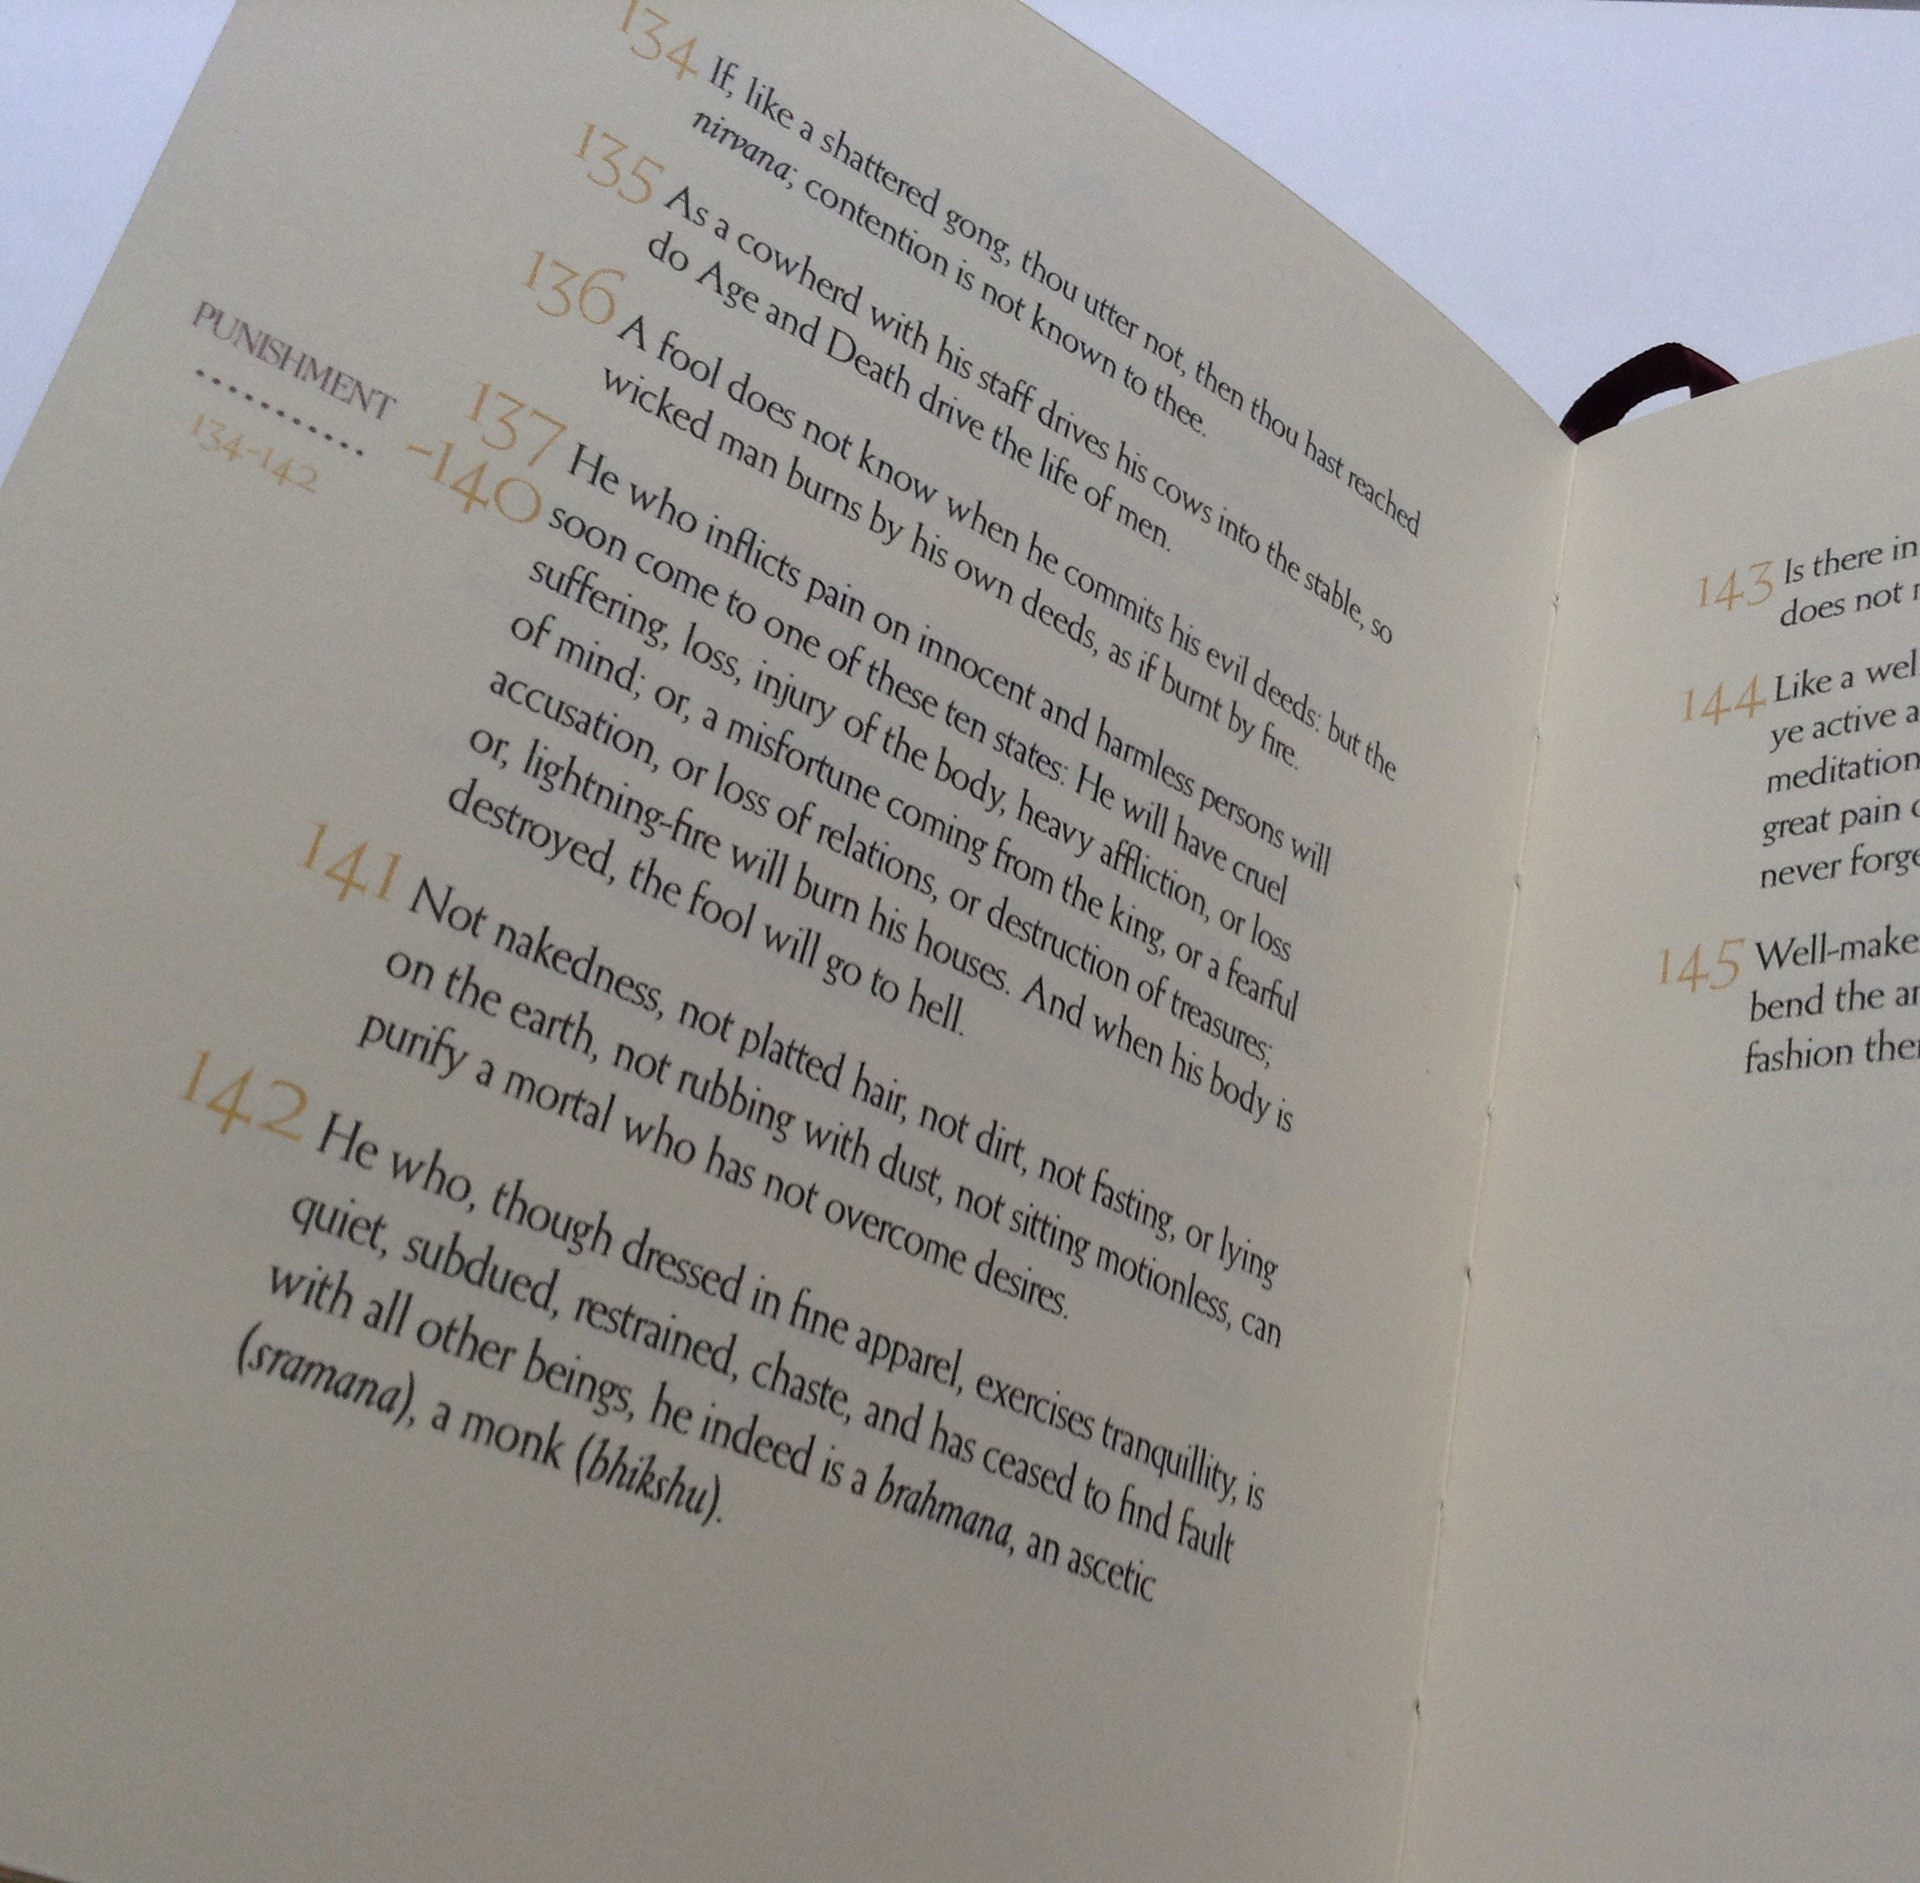 134 If, like a shattered gong, thou utter not, then thou hast reached
nirvana; contention is not known to thee.
135 As a cowherd with his staff drives his cows into the stable, so
do Age and Death drive the life of men.
136 A fool does not know when he commits his evil deeds: but the
wicked man burns by his own deeds, as if burnt by fire.
PUNISHMENT
134-142
137 He who inflicts pain on innocent and harmless persons will
-140 soon come to one of these ten states: He will have cruel
suffering, loss, injury of the body, heavy affliction, or loss
of mind; or, a misfortune coming from the king, or a fearful
accusation, or loss of relations, or destruction of treasures;
or, lightning-fire will burn his houses. And when his body is
destroyed, the fool will go to hell.
141 Not nakedness, not platted hair, not dirt, not fasting, or lying
on the earth, not rubbing with dust, not sitting motionless, can
purify a mortal who has not overcome desires.
142 He who, though dressed in fine apparel, exercises tranquillity, is
quiet, subdued, restrained, chaste, and has ceased to find fault
with all other beings, he indeed is a brahmana, an ascetic
(sramana), a monk (bhikshu).
143 Is there in
does not
144 Like a
ye active
meditation
great pain
never
145
bend the
fashion